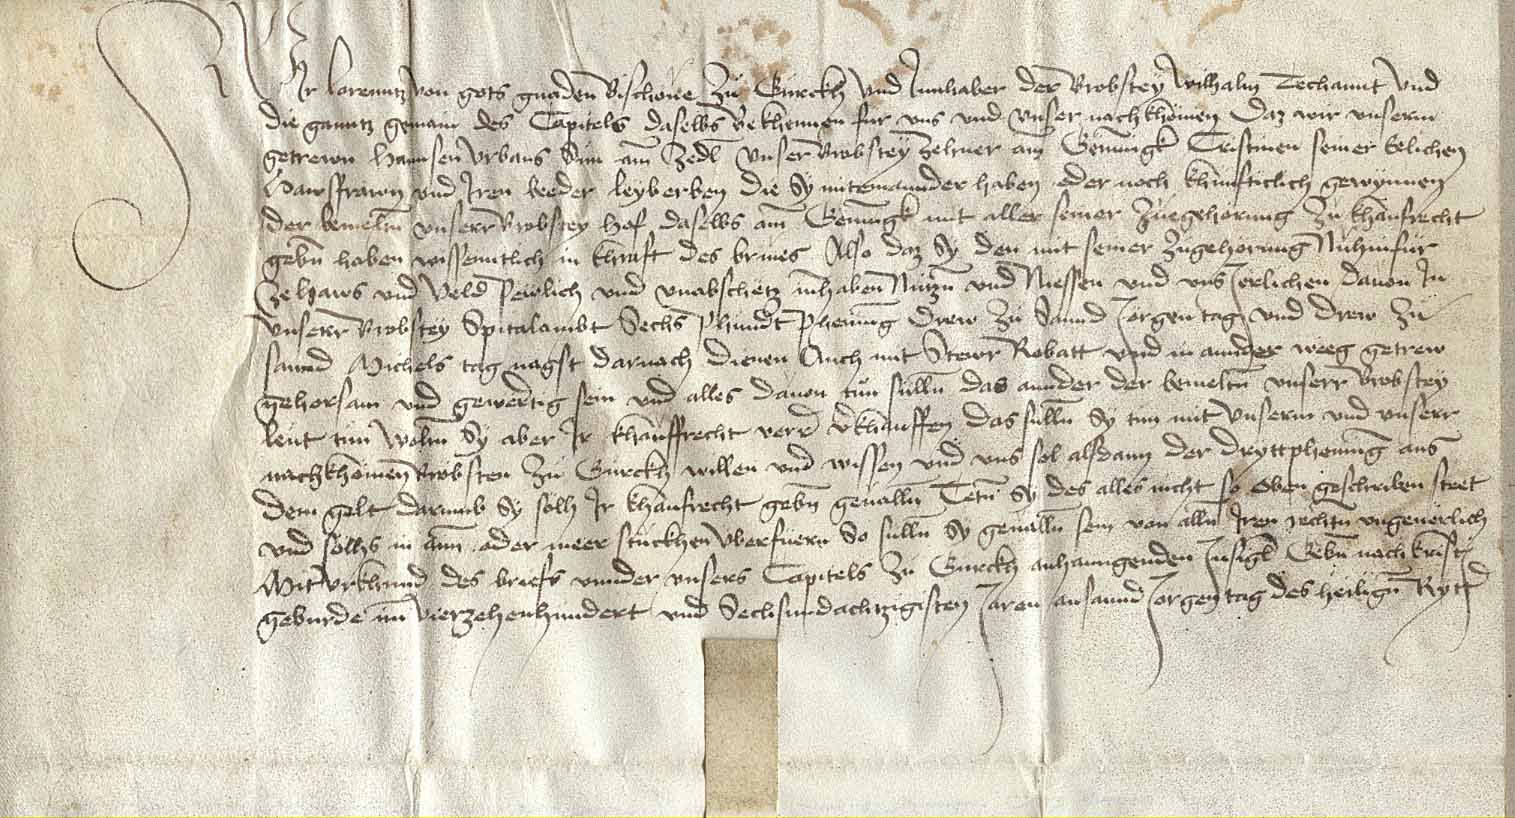 Wir Lorenntz von gots gnaden Bischoue zu Gurckh Vnd Innhaber der Brobstey Wilhalm Techannt Vnd
die ganntz gemain des Capitels daselbs Bekhennen fur vns vnd vnser nachkhomen Daz wir vnserm
getrewn Hannsen Vrbans Sun am Zedl vnser Brobstey Zehner am Gemingk Cristinen seiner Eelichen
Hawsfrawn vnd Iren beeder leyberben die Sy miteinannder haben oder noch khunfticlich gewynnen
der bemeltn vnserr Brobstey Hof daselbs am Gemingk mit aller seiner Zuegehorung zu khaufrecht
gebn haben wissenntlich in khrafft des briues Also daz Sy den mit seiner Zugehorung Nuhinfur
ze Haws vnd Veld Pewlich vnd vnabschetz Innhaben Nutzn vnd Niessen vnd vns Jerlichen dauon In
vnserr Brobstey Spitalambt Sechs Phundt Phening Drew zu Sannd Jorgen tag vnd drew zu
sannd Michels tag nagst darnach dienen Auch mit Stewr Robatt vnd in annder weeg getrew
gehorsam vnd gewerttig sein vnd alles dauon tun sulln das annder der bemeltn vnserr Brobstey
leut tun Wolln Sy aber Ir khauffrecht verrer verkhauffen das sulln Sy tun mit vnserm vnd vnserr
nachkhomen Brobsten zu Gurckh willen vnd wissen vnd vns sol alsdann der dryttphening aus
dem gelt darumb Sy solh Ir khaufrecht gebn geualln Tetn Sy des alles nicht so oben geschriben steet
vnd sollhs in ainm oder meer stuckhen vberfuern So sulln Sy geualln sein von alln Iren rechtn vngeuerlich
Mit vrkhund des briefs vnnder vnsers Capitels zu Gurckh anhanngenden Insigl Gebn nach krists
geburde im Vierzehenhundert vnd Sechsunndachtzigisten Jaren an sannd Jorgen tag des heilign Rytter